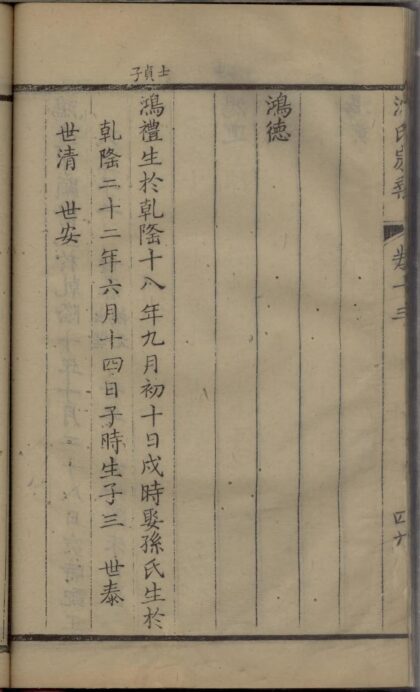 卷十三
鴻德
士貞子
鴻禮生於乾隆十八年九月初十日戌時娶孫氏生於
乾隆二十二年六月十四日子時生子三 世泰
世清 世安